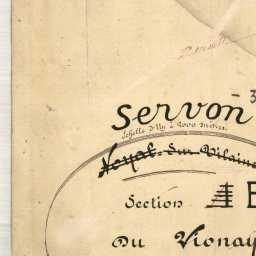 3
Servon
Echelle d'Un à 2000 mètres
Noyal-Sur-Vilaine
Section E
Du Vionay